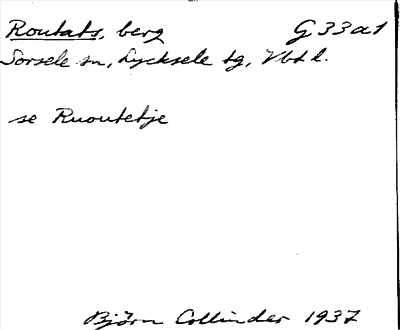 Routats, berg G 33 a 1
Sorsele sn, Lycksele tg, Vbt l.
se Ruoutetje
Björn Collinder 1937